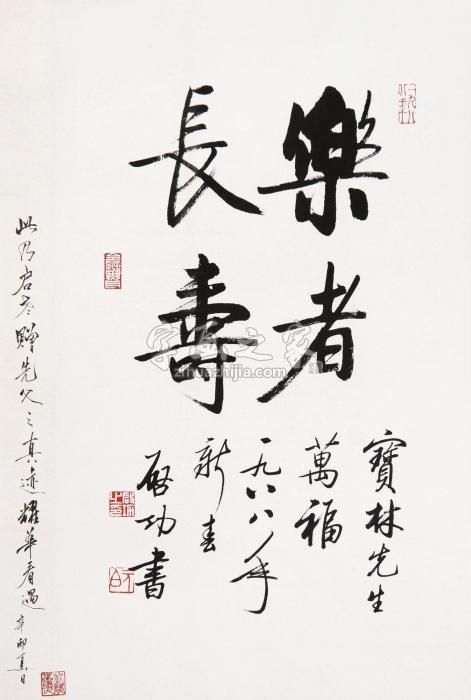 樂者
長壽
寶林先生
萬福
一九八八年
新春
啟功書
此乃启老贈先父之真迹耀華看過辛卯夏日
字画之家
zihuazhijia.com